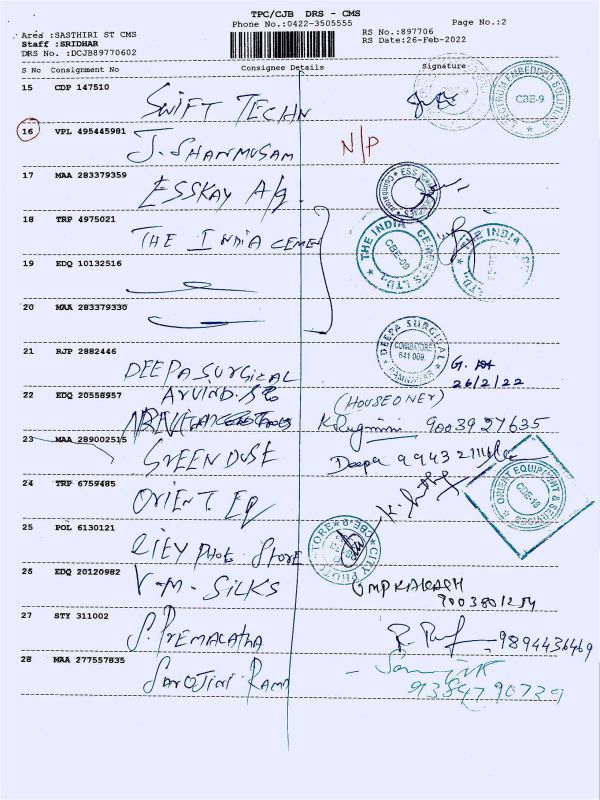 TPC/CJB DRS - CMS
Phone No.:0422-3505555
Page No.:2
Area :SASTHIRI ST CMS
Staff :SRIDHAR
DRS No. :DCJB89770602
RS No.:897706
RS Date:26-Feb-2022
S No Consignment No Consignee Details Signature
15 CDP 147510
SWIFT TECHN
CBE-9
16 VPL 495445981
J. SHANMUGAM N/P
17 MAA 283379359
ESSKAY A/g.
18 TRP 4975021
THE INDIA CEMEN
THE INDIA CEMENTS LTD., CBE-09
THE INDIA
19 EDQ 10132516
20 MAA 283379330
21 RJP 2882446
DEEPA SURGICAL
DEEPA SURGICAL COIMBATORE 641 009. RAMNAGAR
26/2/22
22 EDQ 20558957
ARVIND.
(HOUSE ONER)
9003927635
23 MAA 289002515
GREEN DUSE
Deepa
24 TRP 6759485
ORIENT. EQ
ORIENT EQUIPMENT & CBE-18
25 POL 6130121
CITY PHOTO STORE
CITY PHOTO STORE CBE-9
25 EDQ 20120982
V-M- SILKS
OMPRAKASH
9003801254
27 STY 311002
S. PREMALATHA
9894436469
28 MAA 277557835
SAROJINI RAMA
9384790729